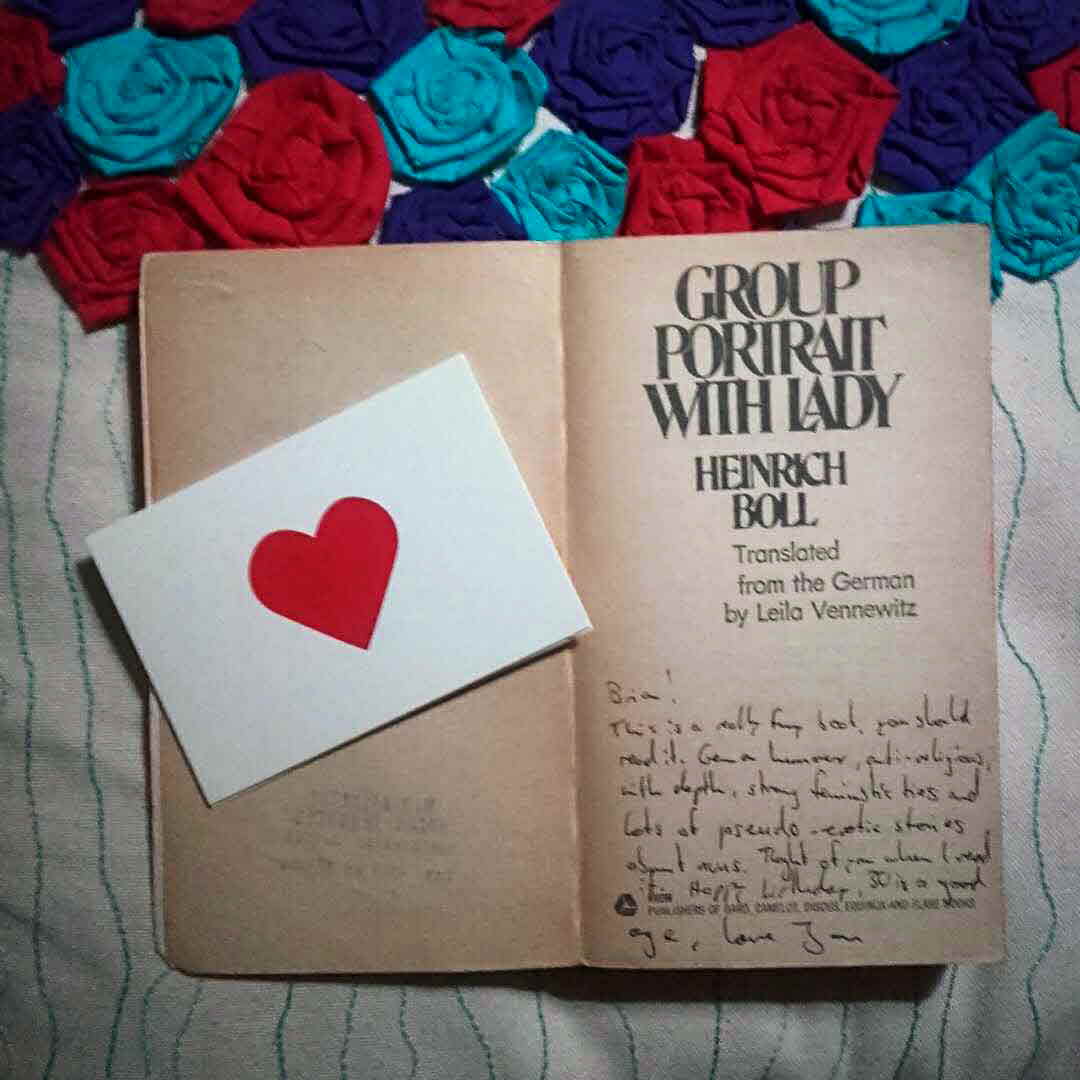 GROUP
PORTRAIT
WITH LADY
HEINRICH
BOLL
Translated
from the German
by Leila Vennewitz
This is a really funny book, you should
read it. German humour, anti-religious,
with depth, strong feministic ties and
lots of pseudo-erotic stories
about nuns. Thought of you when I read
this. Happy birthday, 30 is a good
AVON
PUBLISHERS OF BARD, CAMELOT, DISCUS, EQUINOX AND FLARE BOOKS
age, love